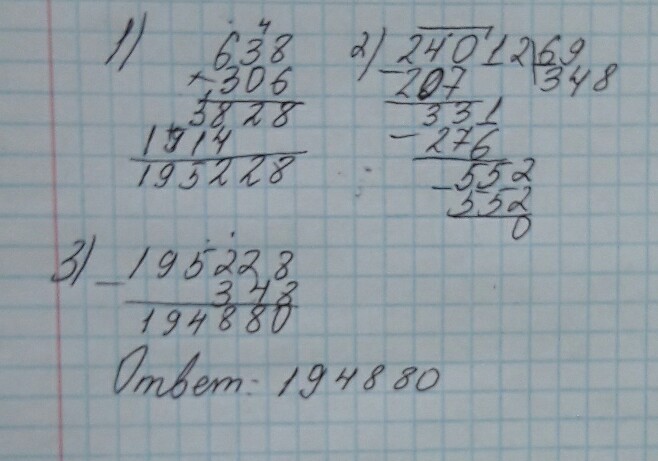 1)
4
638
× 306
3828
1914
195228
2) 24012 | 69
- 207 348
331
- 276
552
- 552
0
3) - 195228
348
194880
Ответ: 194880